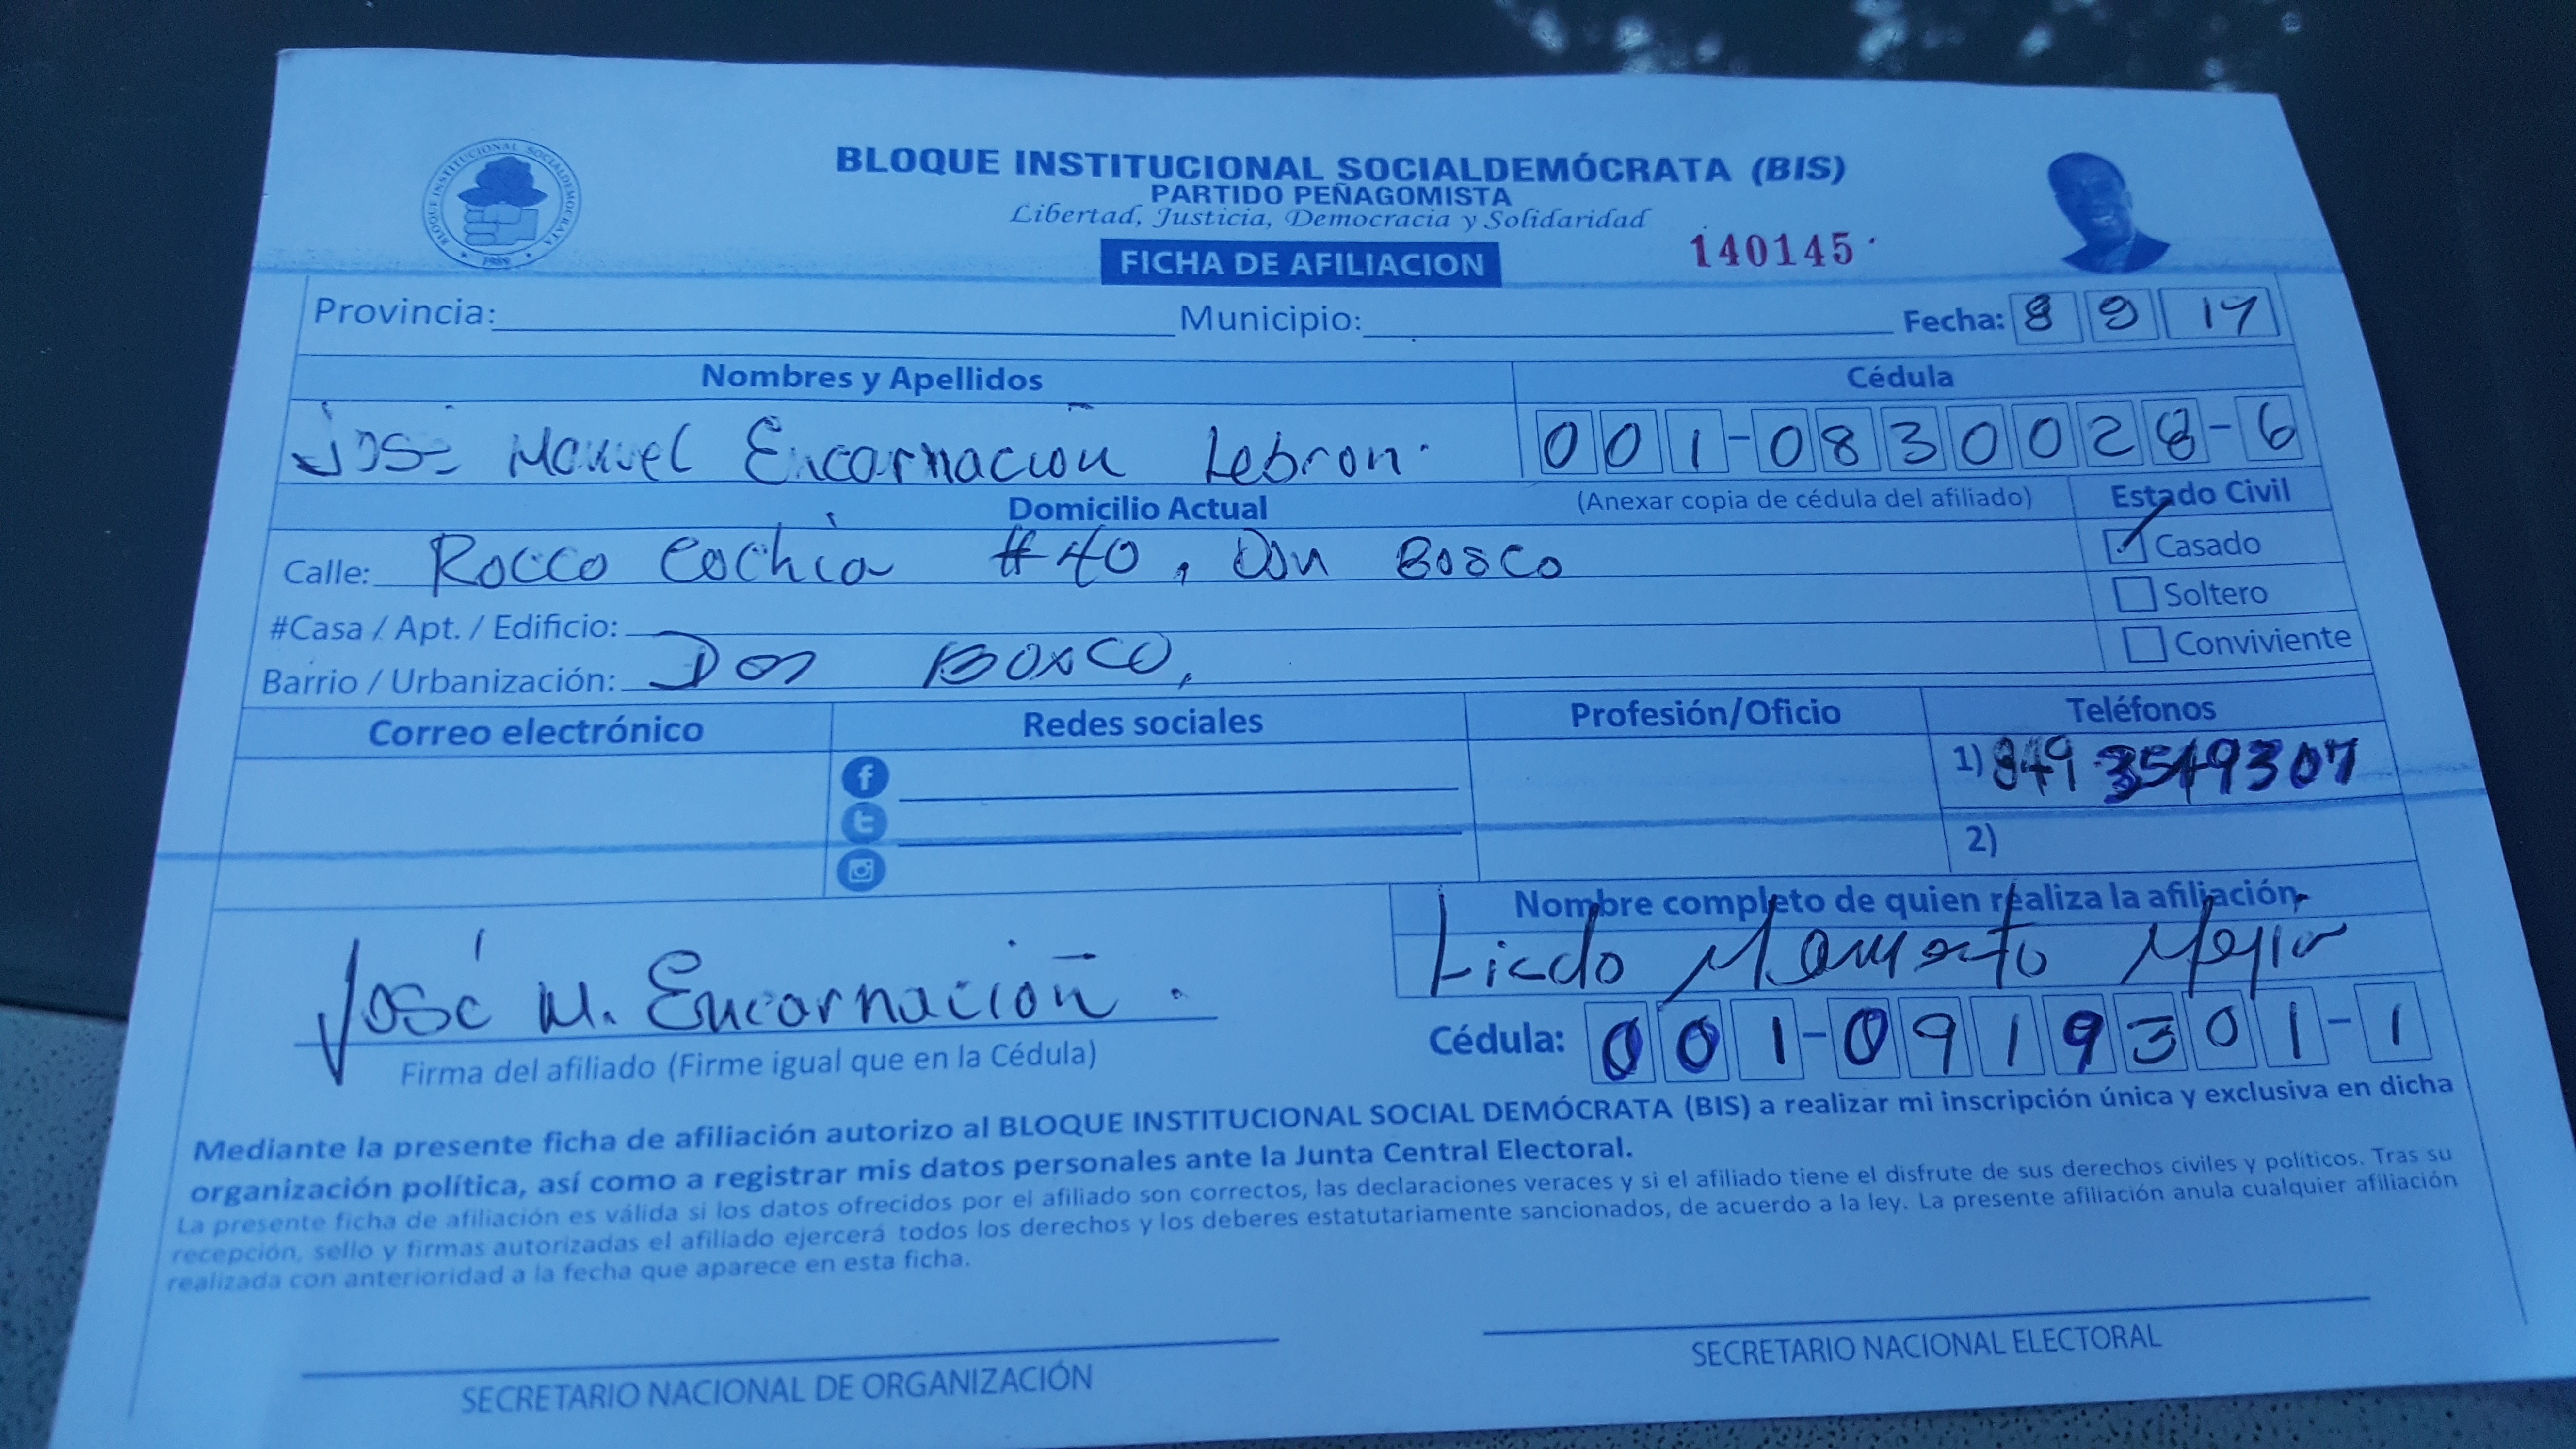 BLOQUE INSTITUCIONAL SOCIALDEMÓCRATA
1989
BLOQUE INSTITUCIONAL SOCIALDEMÓCRATA (BIS)
PARTIDO PEÑAGOMISTA
Libertad, Justicia, Democracia y Solidaridad
FICHA DE AFILIACION 140145
Provincia: Municipio: Fecha: 8 9 17
Nombres y Apellidos Cédula
José Manuel Encarnacion Lebron. 001-0830028-6
Domicilio Actual (Anexar copia de cédula del afiliado) Estado Civil
Calle: Rocco Cochia #40, Don Bosco Casado
#Casa / Apt. / Edificio: Soltero
Barrio / Urbanización: Don Bosco, Conviviente
Correo electrónico Redes sociales Profesión/Oficio Teléfonos
1) 849 3549307
2)
Nombre completo de quien realiza la afiliación
Licdo Mejia
José M. Encarnacion.
Cédula: 001-0919301-1
Firma del afiliado (Firme igual que en la Cédula)
Mediante la presente ficha de afiliación autorizo al BLOQUE INSTITUCIONAL SOCIAL DEMÓCRATA (BIS) a realizar mi inscripción única y exclusiva en dicha
organización política, así como a registrar mis datos personales ante la Junta Central Electoral.
La presente ficha de afiliación es válida si los datos ofrecidos por el afiliado son correctos, las declaraciones veraces y si el afiliado tiene el disfrute de sus derechos civiles y políticos. Tras su
recepción, sello y firmas autorizadas el afiliado ejercerá todos los derechos y los deberes estatutariamente sancionados, de acuerdo a la ley. La presente afiliación anula cualquier afiliación
realizada con anterioridad a la fecha que aparece en esta ficha.
SECRETARIO NACIONAL DE ORGANIZACIÓN SECRETARIO NACIONAL ELECTORAL